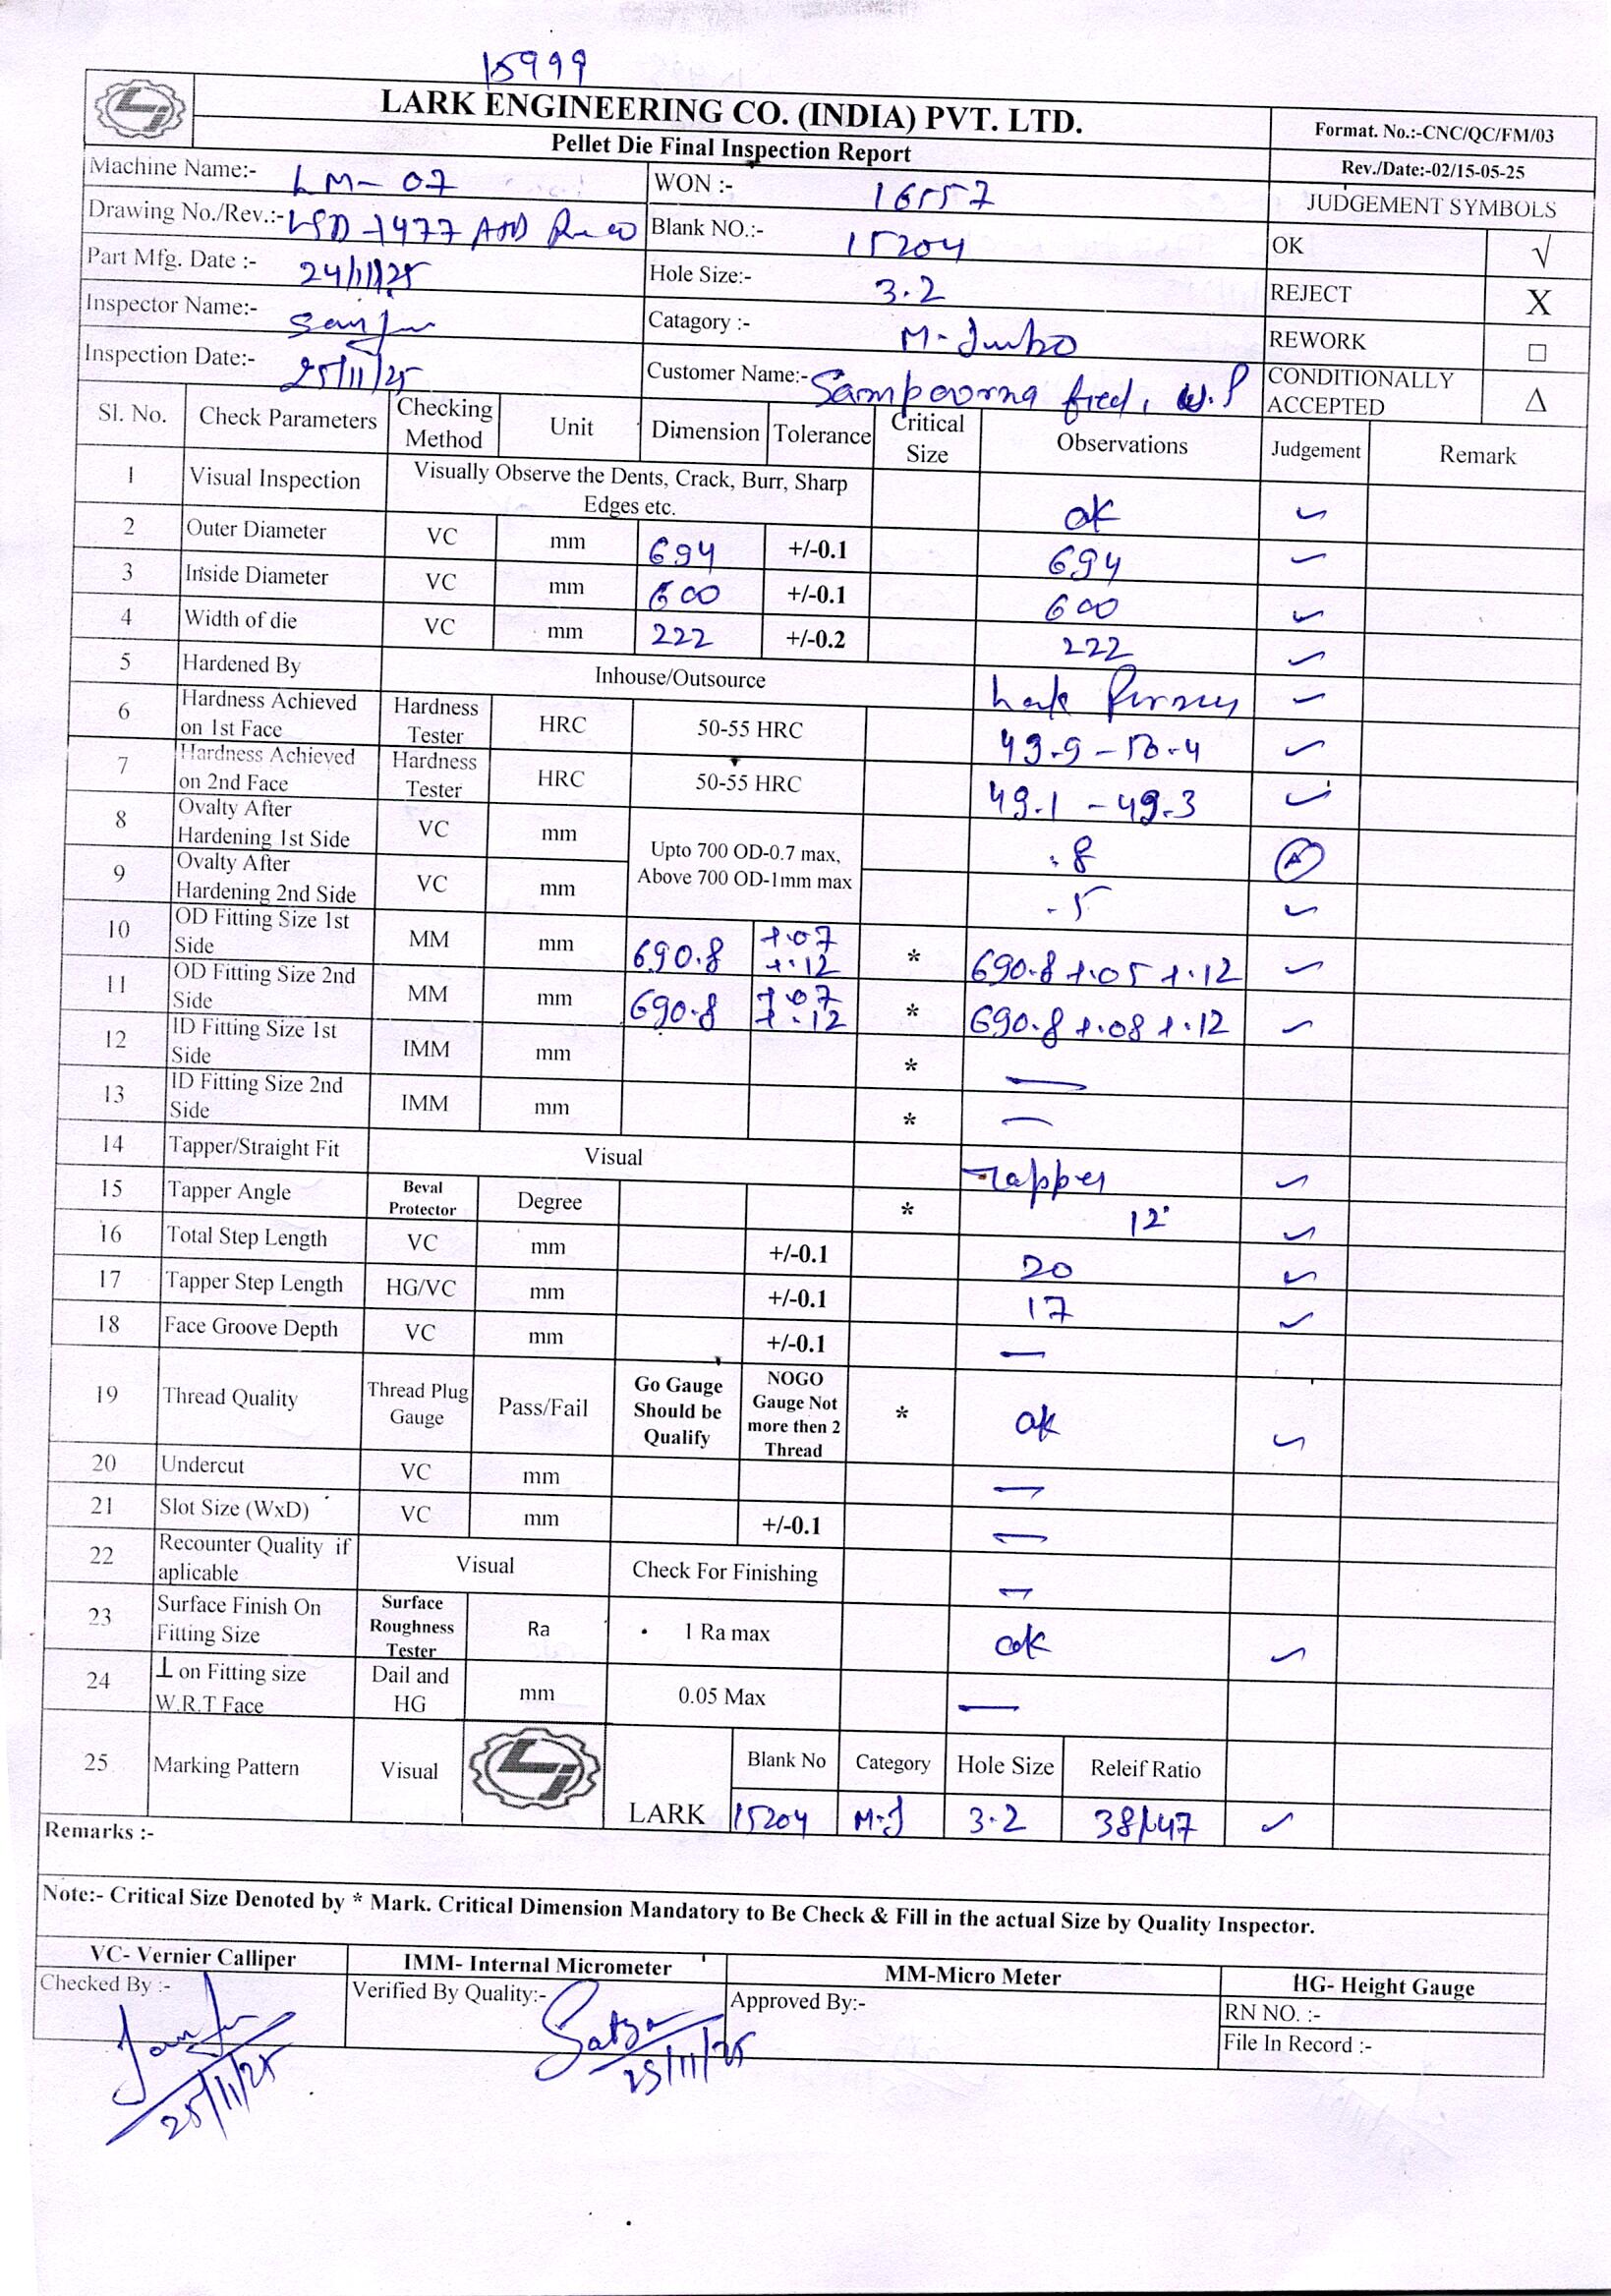 15999
LARK ENGINEERING CO. (INDIA) PVT. LTD.
Pellet Die Final Inspection Report
Format. No.:-CNC/QC/FM/03
Rev./Date:-02/15-05-25
Machine Name:- LM-07
WON :- 16557
JUDGEMENT SYMBOLS
Drawing No./Rev.:- LSD-1477
Blank NO.:- 15204
OK √
Part Mfg. Date :- 24/11/25
Hole Size:- 3.2
REJECT X
Inspector Name:- Sanju
Catagory :- M-Jumbo
REWORK □
Inspection Date:- 25/11/25
Customer Name:- Sampoorna feed,
CONDITIONALLY ACCEPTED Δ
Sl. No. Check Parameters Checking Method Unit Dimension Tolerance Critical Size Observations Judgement Remark
1 Visual Inspection Visually Observe the Dents, Crack, Burr, Sharp Edges etc. ok ✓
2 Outer Diameter VC mm 694 +/-0.1 694 ✓
3 Inside Diameter VC mm 600 +/-0.1 600 ✓
4 Width of die VC mm 222 +/-0.2 222 ✓
5 Hardened By Inhouse/Outsource Lark ✓
6 Hardness Achieved on 1st Face Hardness Tester HRC 50-55 HRC 49.9 - 50.4 ✓
7 Hardness Achieved on 2nd Face Hardness Tester HRC 50-55 HRC 49.1 - 49.3 ✓
8 Ovalty After Hardening 1st Side VC mm Upto 700 OD-0.7 max, Above 700 OD-1mm max .8
9 Ovalty After Hardening 2nd Side VC mm .5 ✓
10 OD Fitting Size 1st Side MM mm 690.8 +.07 +.12 * 690.8 +.05 +.12 ✓
11 OD Fitting Size 2nd Side MM mm 690.8 +.07 +.12 * 690.8 +.08 +.12 ✓
12 ID Fitting Size 1st Side IMM mm * —
13 ID Fitting Size 2nd Side IMM mm * —
14 Tapper/Straight Fit Visual Tapper ✓
15 Tapper Angle Beval Protector Degree * 12° ✓
16 Total Step Length VC mm +/-0.1 20 ✓
17 Tapper Step Length HG/VC mm +/-0.1 17 ✓
18 Face Groove Depth VC mm +/-0.1 —
19 Thread Quality Thread Plug Gauge Pass/Fail Go Gauge Should be Qualify NOGO Gauge Not more then 2 Thread * ok ✓
20 Undercut VC mm —
21 Slot Size (WxD) VC mm +/-0.1 —
22 Recounter Quality if aplicable Visual Check For Finishing —
23 Surface Finish On Fitting Size Surface Roughness Tester Ra 1 Ra max ok ✓
24 ⊥ on Fitting size W.R.T Face Dail and HG mm 0.05 Max —
25 Marking Pattern Visual LARK Blank No Category Hole Size Releif Ratio
15204 M-J 3.2 38/47 ✓
Remarks :-
Note:- Critical Size Denoted by * Mark. Critical Dimension Mandatory to Be Check & Fill in the actual Size by Quality Inspector.
VC- Vernier Calliper IMM- Internal Micrometer MM-Micro Meter HG- Height Gauge
Checked By :- Sanju 25/11/25
Verified By Quality:- Satya 25/11/25
Approved By:-
RN NO. :-
File In Record :-